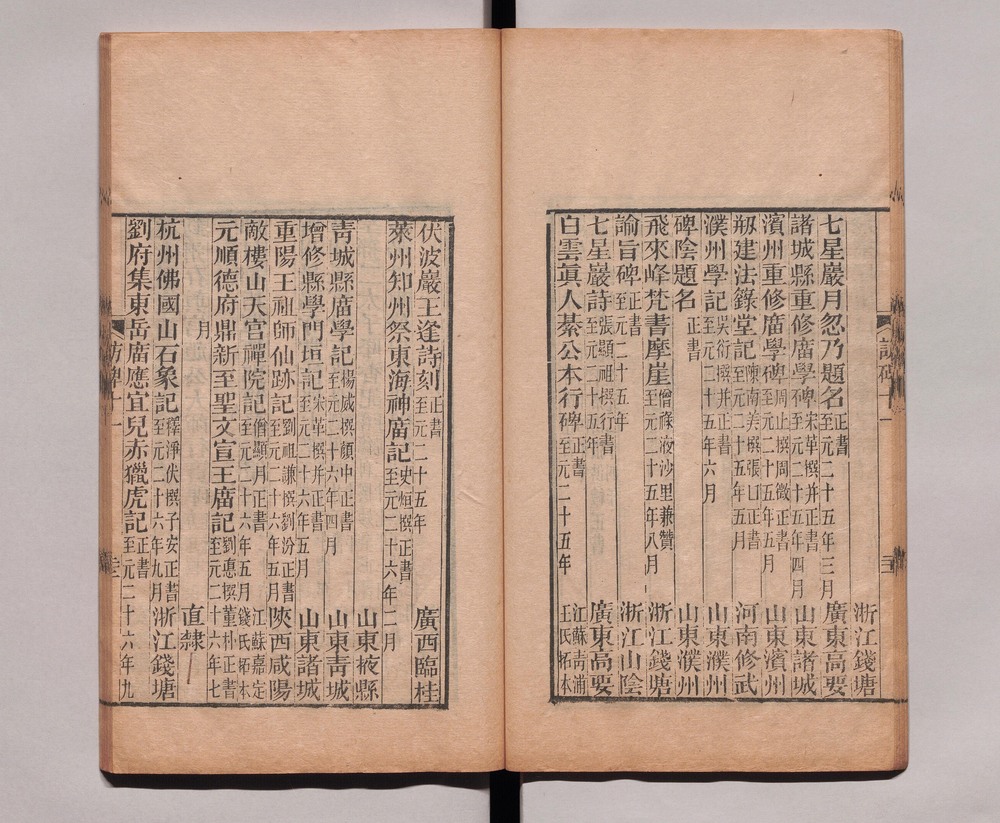 浙江錢塘
七星巖月忽乃題名 正書 至元二十五年三月 廣東高要
諸城縣重修廟學碑 宋革撰并正書 至元二十五年四月 山東諸城
濱州重修廟學碑 周止撰周徵正書 至元二十五年五月 山東濱州
剏建法籙堂記 陳南美撰張山正書 至元二十五年五月 河南修武
濮州學記 吳衍撰并正書 至元二十五年六月 山東濮州
碑陰題名 正書 山東濮州
飛來峰梵書摩崖 僧條液沙里兼贊 至元二十五年八月 浙江錢塘
諭旨碑 正書 至元二十五年 浙江山陰
七星巖詩 張顯祖撰行書 至元二十五年 廣東高要
白雲眞人綦公本行碑 正書 至元二十五年 江蘇青浦王氏拓本
伏波巖王逢詩刻 正書 至元二十五年 廣西臨桂
萊州知州祭東海神廟記 史烜撰正書 至元二十六年二月 山東掖縣
青城縣廟學記 楊威撰顏中正書 至元二十六年四月 山東青城
增修縣學門垣記 宋革撰并正書 至元二十六年五月 山東諸城
重陽王祖師仙跡記 劉祖謙撰劉汾正書 至元二十六年五月 陝西咸陽
敵樓山天宮禪院記 僧顯月正書 至元二十六年五月 江蘇嘉定錢氏拓本
元順德府鼎新至聖文宣王廟記 劉惪撰董朴正書 至元二十六年七
月 直隸
杭州佛國山石象記 釋淨伏撰子安正書 至元二十六年九月 浙江錢塘
劉府集東岳廟應宜兒赤獵虎記 正書 至元二十六年九
訪碑十一